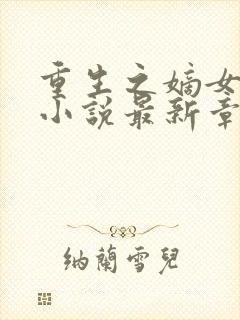 重生之嫡女
小說最新章
納蘭雪兒